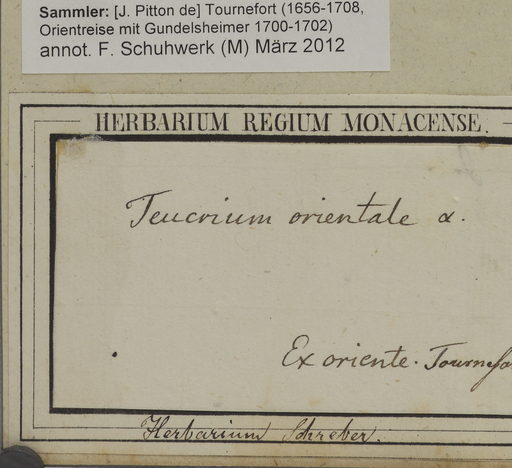 Sammler: [J. Pitton de] Tournefort (1656-1708,
Orientreise mit Gundelsheimer 1700-1702)
annot. F. Schuhwerk (M) März 2012
HERBARIUM REGIUM MONACENSE.
Teucrium orientale α.
Ex oriente. Tournefo
Herbarium Schreber.